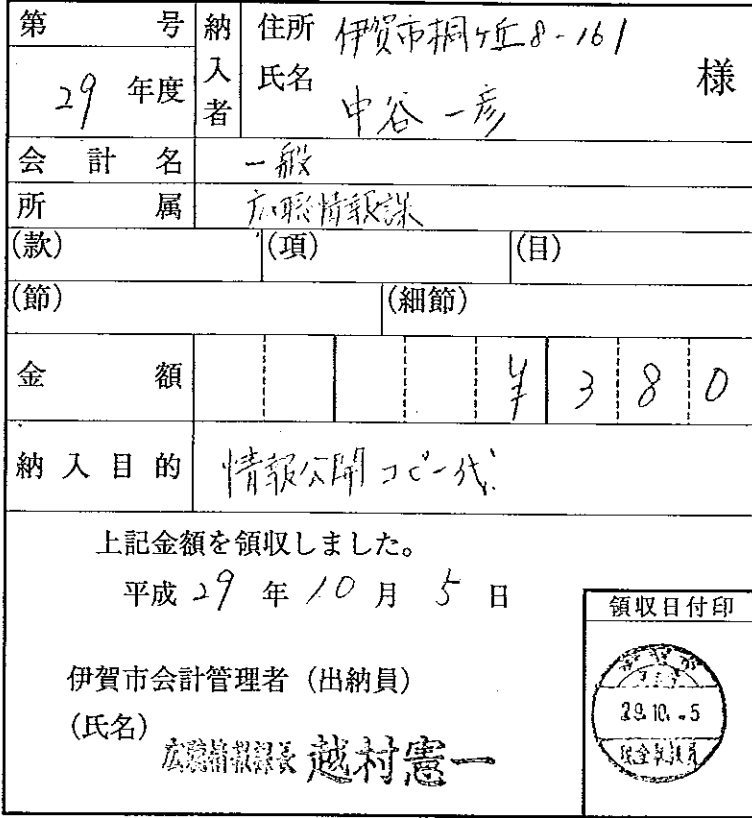 第 号
29 年度
納入者
住所 伊賀市桐ヶ丘8-161
氏名 中谷 一彦 様
会計名 一般
所属 広聴情報課
(款) (項) (目)
(節) (細節)
金額 ¥380
納入目的 情報公開コピー代
上記金額を領収しました。
平成 29 年 10 月 5 日
領収日付印
伊賀市会計管理者（出納員）
(氏名) 広聴情報課長 越村憲一
伊賀市
29.10.-5
現金取扱員